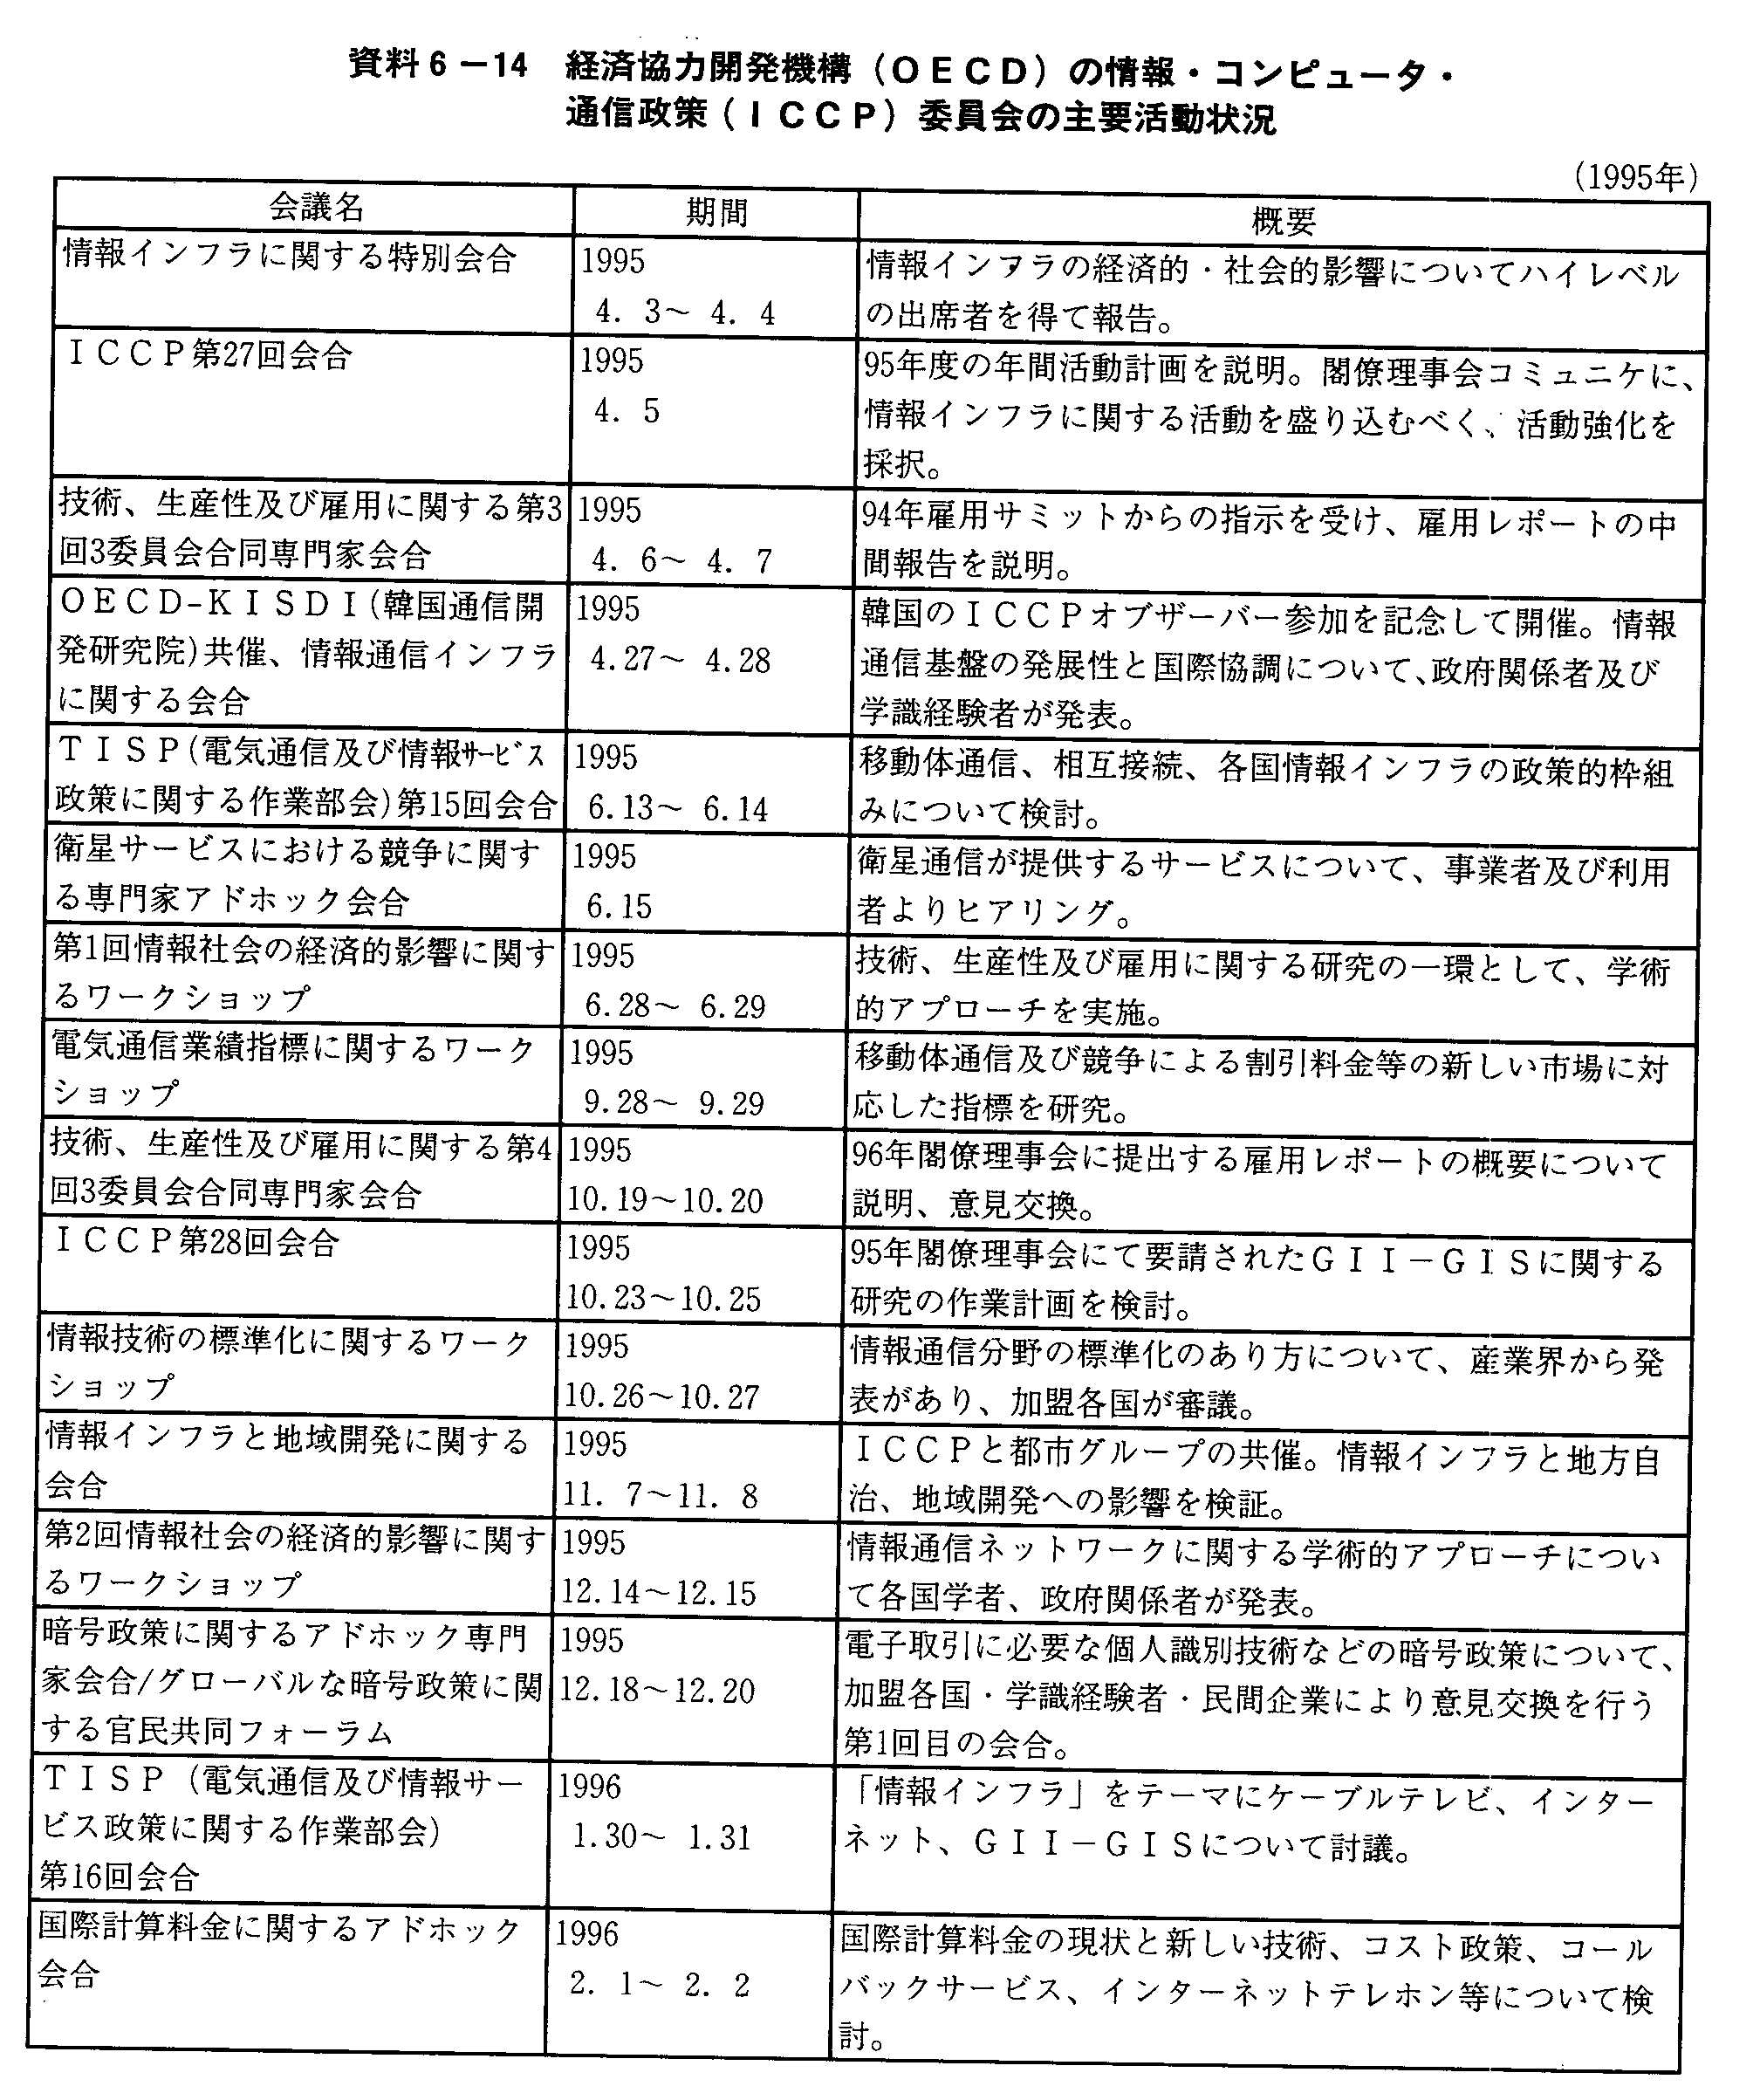 資料6－14　経済協力開発機構（ＯＥＣＤ）の情報・コンピュータ・
通信政策（ＩＣＣＰ）委員会の主要活動状況
（1995年）
会議名　期間　概要
情報インフラに関する特別会合
1995
4. 3～ 4. 4
情報インフラの経済的・社会的影響についてハイレベル
の出席者を得て報告。
ＩＣＣＰ第27回会合
1995
4. 5
95年度の年間活動計画を説明。閣僚理事会コミュニケに、
情報インフラに関する活動を盛り込むべく、活動強化を
採択。
技術、生産性及び雇用に関する第3
回3委員会合同専門家会合
1995
4. 6～ 4. 7
94年雇用サミットからの指示を受け、雇用レポートの中
間報告を説明。
ＯＥＣＤ-ＫＩＳＤＩ(韓国通信開
発研究院)共催、情報通信インフラ
に関する会合
1995
4.27～ 4.28
韓国のＩＣＣＰオブザーバー参加を記念して開催。情報
通信基盤の発展性と国際協調について、政府関係者及び
学識経験者が発表。
ＴＩＳＰ(電気通信及び情報ｻｰﾋﾞｽ
政策に関する作業部会)第15回会合
1995
6.13～ 6.14
移動体通信、相互接続、各国情報インフラの政策的枠組
みについて検討。
衛星サービスにおける競争に関す
る専門家アドホック会合
1995
6.15
衛星通信が提供するサービスについて、事業者及び利用
者よりヒアリング。
第1回情報社会の経済的影響に関す
るワークショップ
1995
6.28～ 6.29
技術、生産性及び雇用に関する研究の一環として、学術
的アプローチを実施。
電気通信業績指標に関するワーク
ショップ
1995
9.28～ 9.29
移動体通信及び競争による割引料金等の新しい市場に対
応した指標を研究。
技術、生産性及び雇用に関する第4
回3委員会合同専門家会合
1995
10.19～10.20
96年閣僚理事会に提出する雇用レポートの概要について
説明、意見交換。
ＩＣＣＰ第28回会合
1995
10.23～10.25
95年閣僚理事会にて要請されたＧＩＩ－ＧＩＳに関する
研究の作業計画を検討。
情報技術の標準化に関するワーク
ショップ
1995
10.26～10.27
情報通信分野の標準化のあり方について、産業界から発
表があり、加盟各国が審議。
情報インフラと地域開発に関する
会合
1995
11. 7～11. 8
ＩＣＣＰと都市グループの共催。情報インフラと地方自
治、地域開発への影響を検証。
第2回情報社会の経済的影響に関す
るワークショップ
1995
12.14～12.15
情報通信ネットワークに関する学術的アプローチについ
て各国学者、政府関係者が発表。
暗号政策に関するアドホック専門
家会合/グローバルな暗号政策に関
する官民共同フォーラム
1995
12.18～12.20
電子取引に必要な個人識別技術などの暗号政策について、
加盟各国・学識経験者・民間企業により意見交換を行う
第1回目の会合。
ＴＩＳＰ（電気通信及び情報サー
ビス政策に関する作業部会）
第16回会合
1996
1.30～ 1.31
「情報インフラ」をテーマにケーブルテレビ、インター
ネット、ＧＩＩ－ＧＩＳについて討議。
国際計算料金に関するアドホック
会合
1996
2. 1～ 2. 2
国際計算料金の現状と新しい技術、コスト政策、コール
バックサービス、インターネットテレホン等について検
討。